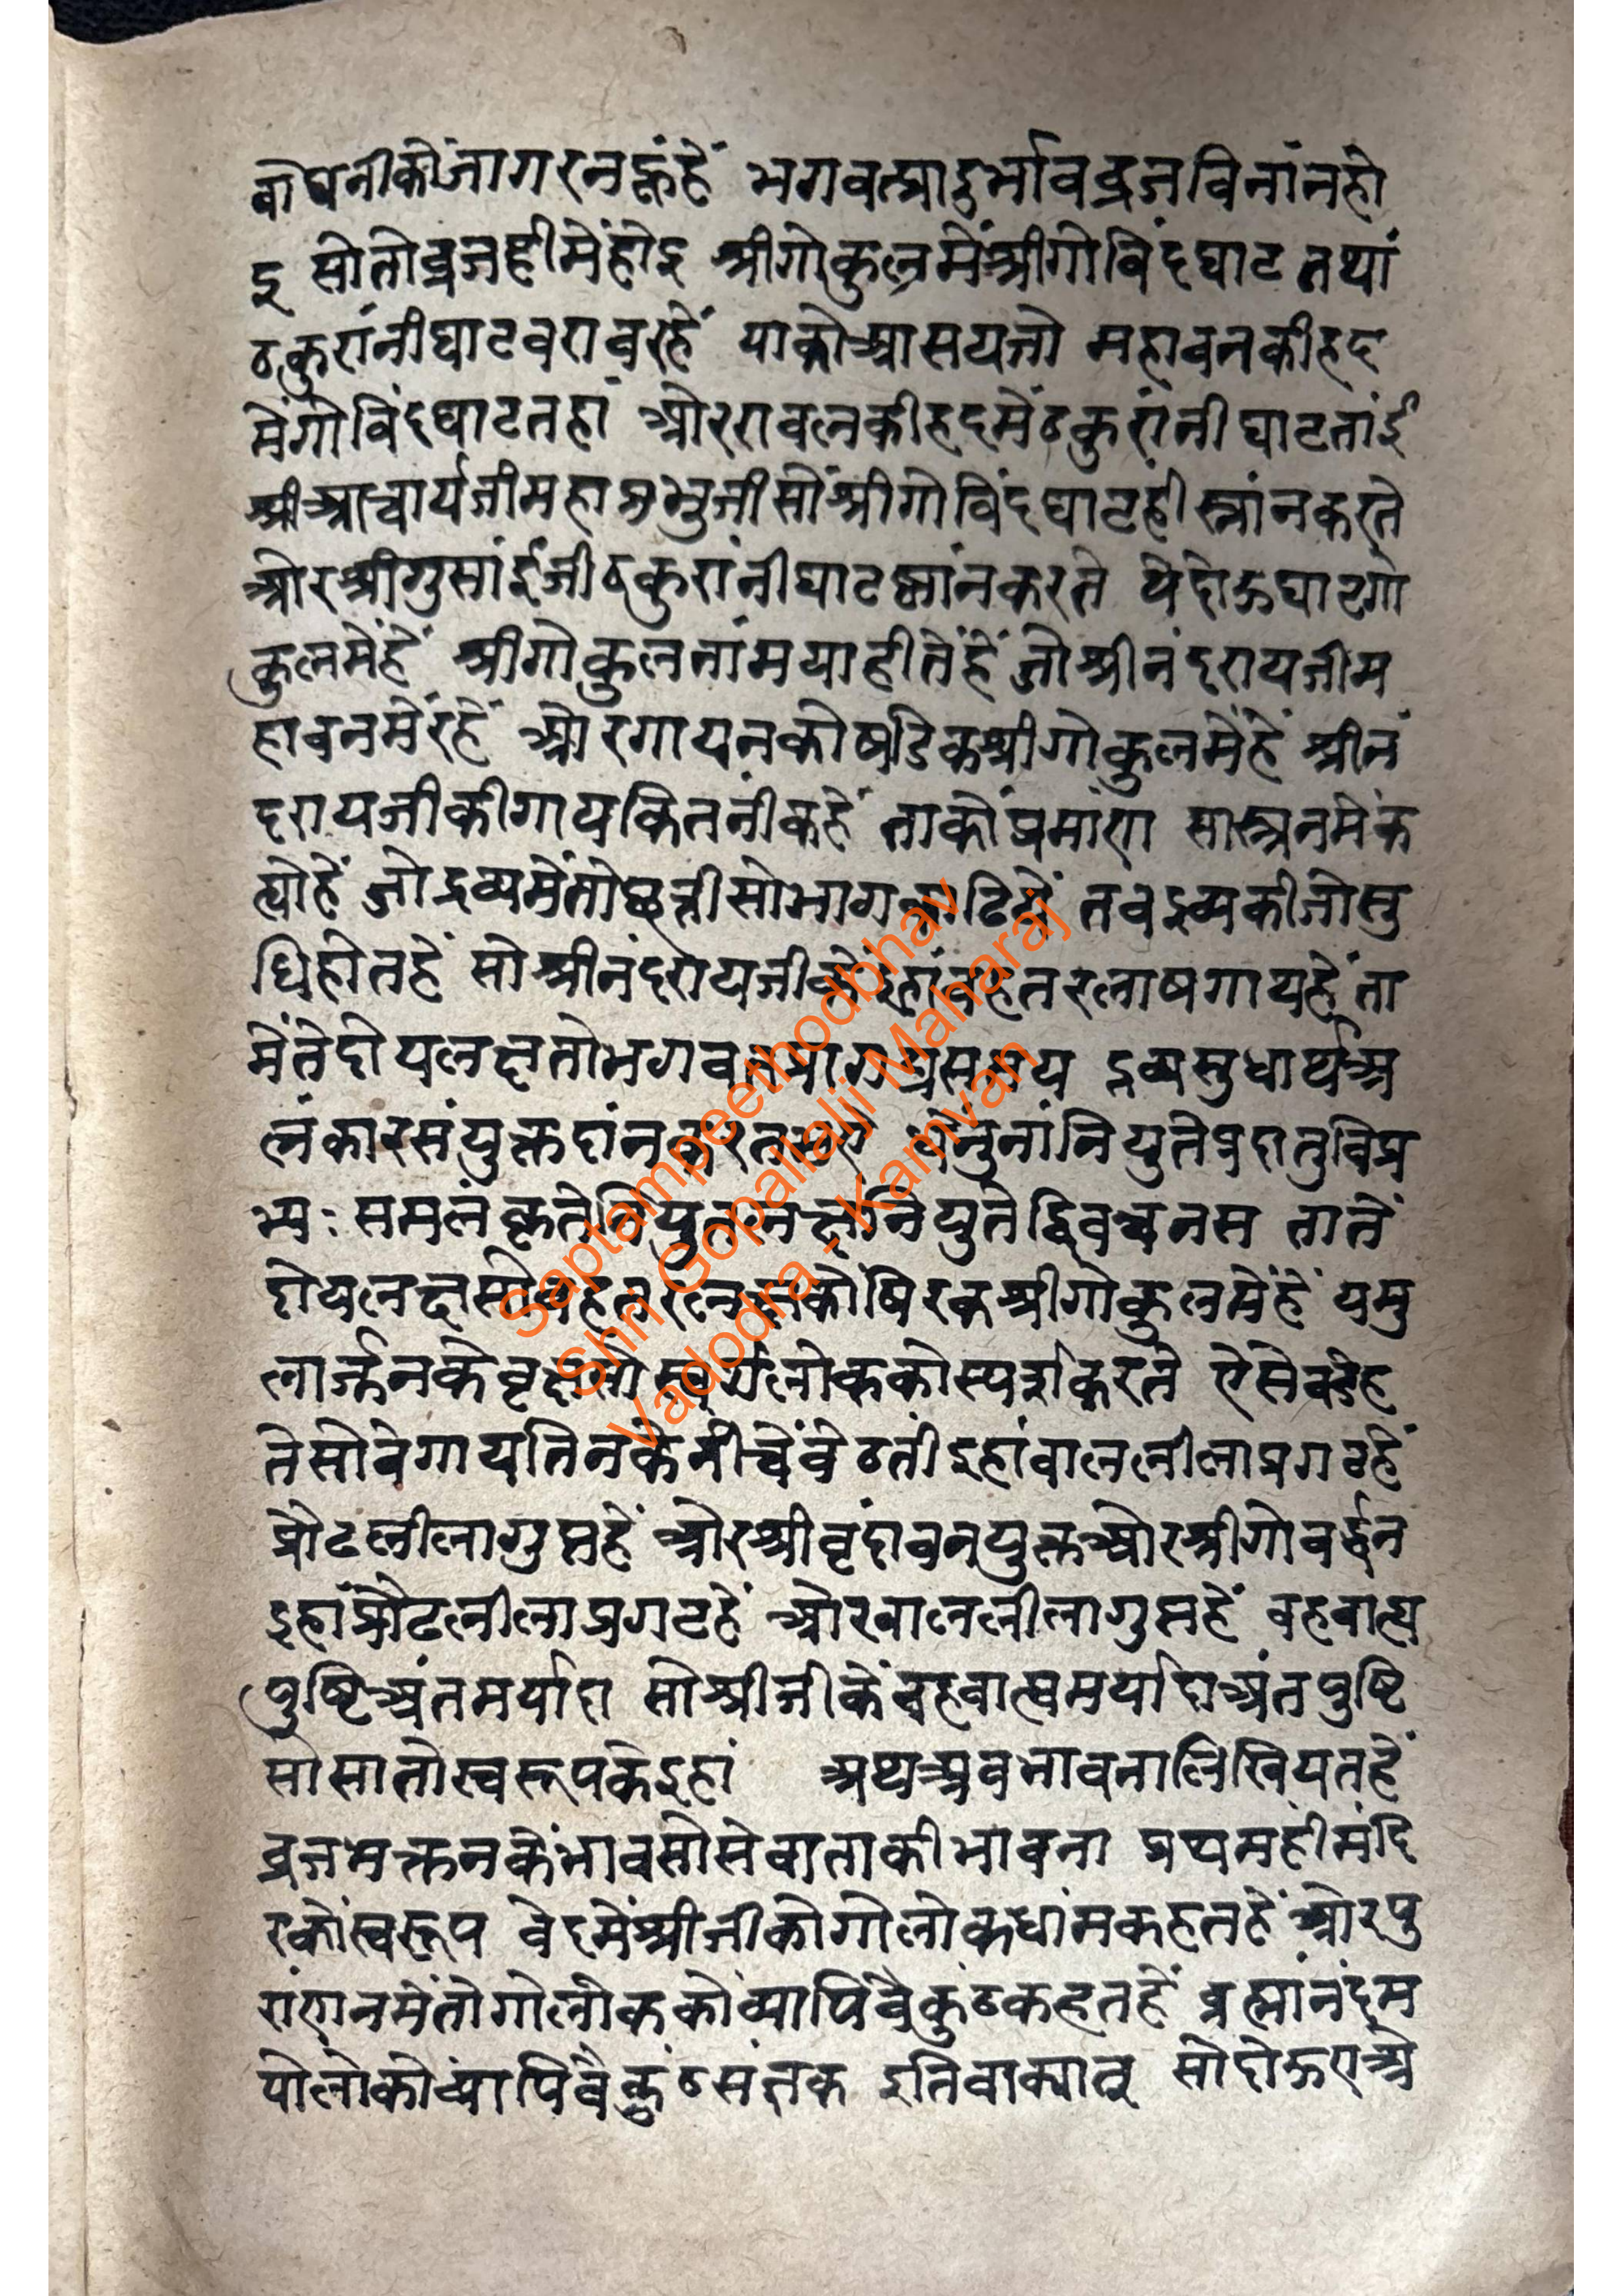 बोधनीकोंजागरनहूंहें भगवत्प्रादुर्भावव्रजविनांनहो
इ सोतोव्रजहीमेंहोइ श्रीगोकुलमेंश्रीगोविंदघाट तथां
ठकुरांनीघाटबराबरहें याकोआसयजो महावनकीहद
मेंगोविंदघाटतहां ओररावलकीहदमेंठकुरांनीघाटतांई
श्रीआचार्यजीमहाप्रभुजीसोंश्रीगोविंदघाटहीस्नांनकरते
ओरश्रीगुसांईजीठकुरांनीघाटस्नांनकरते येदोऊघाटगो
कुलमेंहें श्रीगोकुलनांमयाहीतेंहें जोश्रीनंदरायजीम
हावनमेंरहें ओरगायनकोषडिकश्रीगोकुलमेंहें श्रीनं
दरायजीकीगायकितनीकहें ताकोंप्रमांण सास्त्रनमेंक
ह्योहें जोद्रव्यमेंतोछत्तीसोभाग तबद्रव्यकीजोसु
धिहोतहें सोश्रीनंदरायजीकेंइहांबहुतरलाषगायहेंता
मेंतेदोयलक्षतोभगवत्प्रागट्यसमय द्रव्यसुधार्थअ
लंकारसंयुक्तदांनकरतभए धेनुनांनियुतेप्रदातुविप्र
भ्यः समलंकृतेनियुतलक्षंनियुतेद्विवचनस तातें
दोयलक्षसोबहतरलक्षकोषिरकश्रीगोकुलमेंहें यमु
लार्जुनकेवृक्षसोसूर्यलोककोस्पर्शकरते ऐसेबडेह
तेसोवेगायतिनकेनीचेंबेठतीइहांबाललीलाप्रगटहें
प्रौढलीलागुप्तहें ओरश्रीवृंदावनयुक्तओरश्रीगोवर्द्धन
इहांप्रौढलीलाप्रगटहें ओरबाललीलागुप्तहें बहबाल्य
पुष्टिअंतमर्यादा सोश्रीजीकेंबहबाल्यमर्यादाअंतपुष्टि
सोसातोस्वरूपकेइहां अथअबभावनालिखियतहें
व्रजभक्तनकेंभावसोसेवाताकीभावना प्रथमहीमंदि
रकोंस्वरूप वेदमेंश्रीजीकोगोलोकधांमकहतहें ओरपु
रांणनमेंतोगोलोककोंव्यापिवैकुंठकहतहें ब्रह्मांनंदम
योलोकोव्यापिवैकुंठसंज्ञक इतिवाक्यात् सोदोऊएओ
Saptampeethodbhav
Shri Gopallalji Maharaj
Vadodra - Kamvan